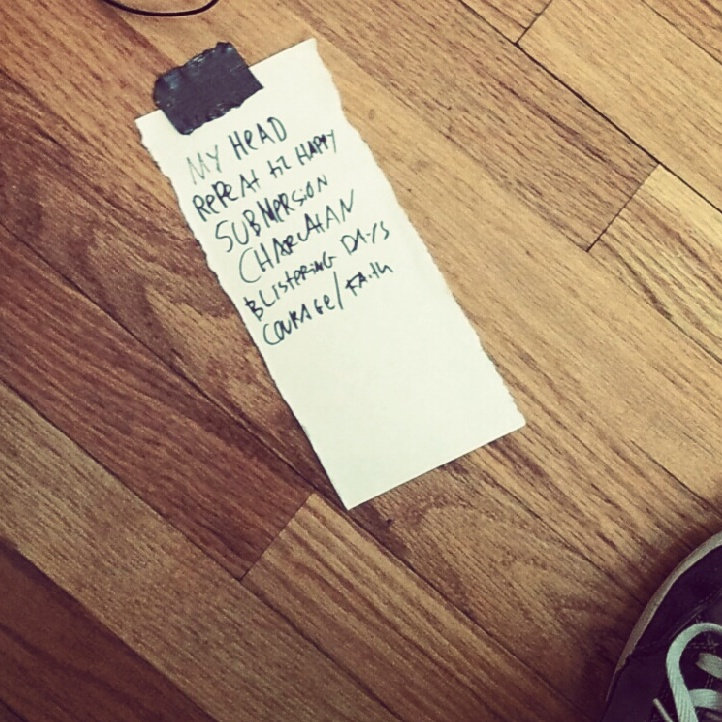 MY HEAD
REPEAT til HAPPY
SUBMERSION
CHARLATAN
BLISTERING DAYS
COURAGE/FAith